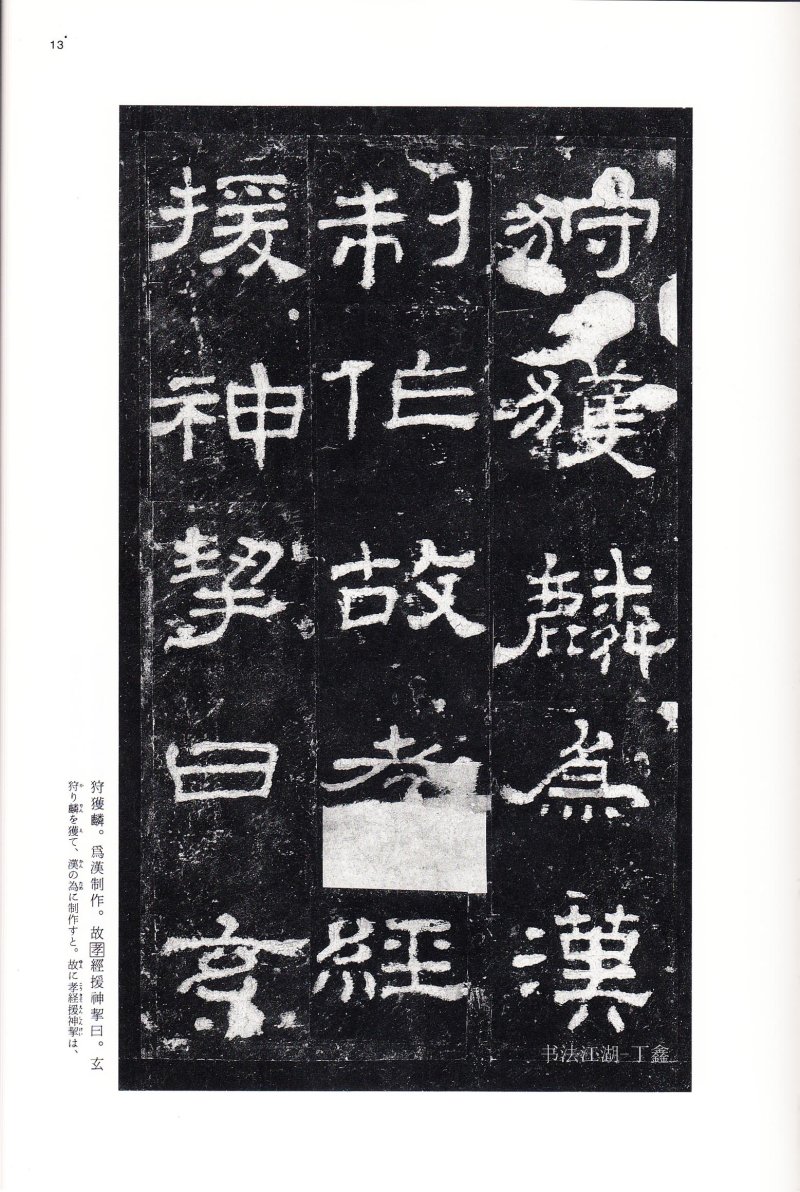 13
狩獲麟爲漢
制作故孝經
援神挈曰玄
狩獲麟。爲漢制作。故孝經援神挈曰。玄
狩り麟を獲て、漢の為に制作すと。故に孝経援神挈は、
书法江湖-丁鑫